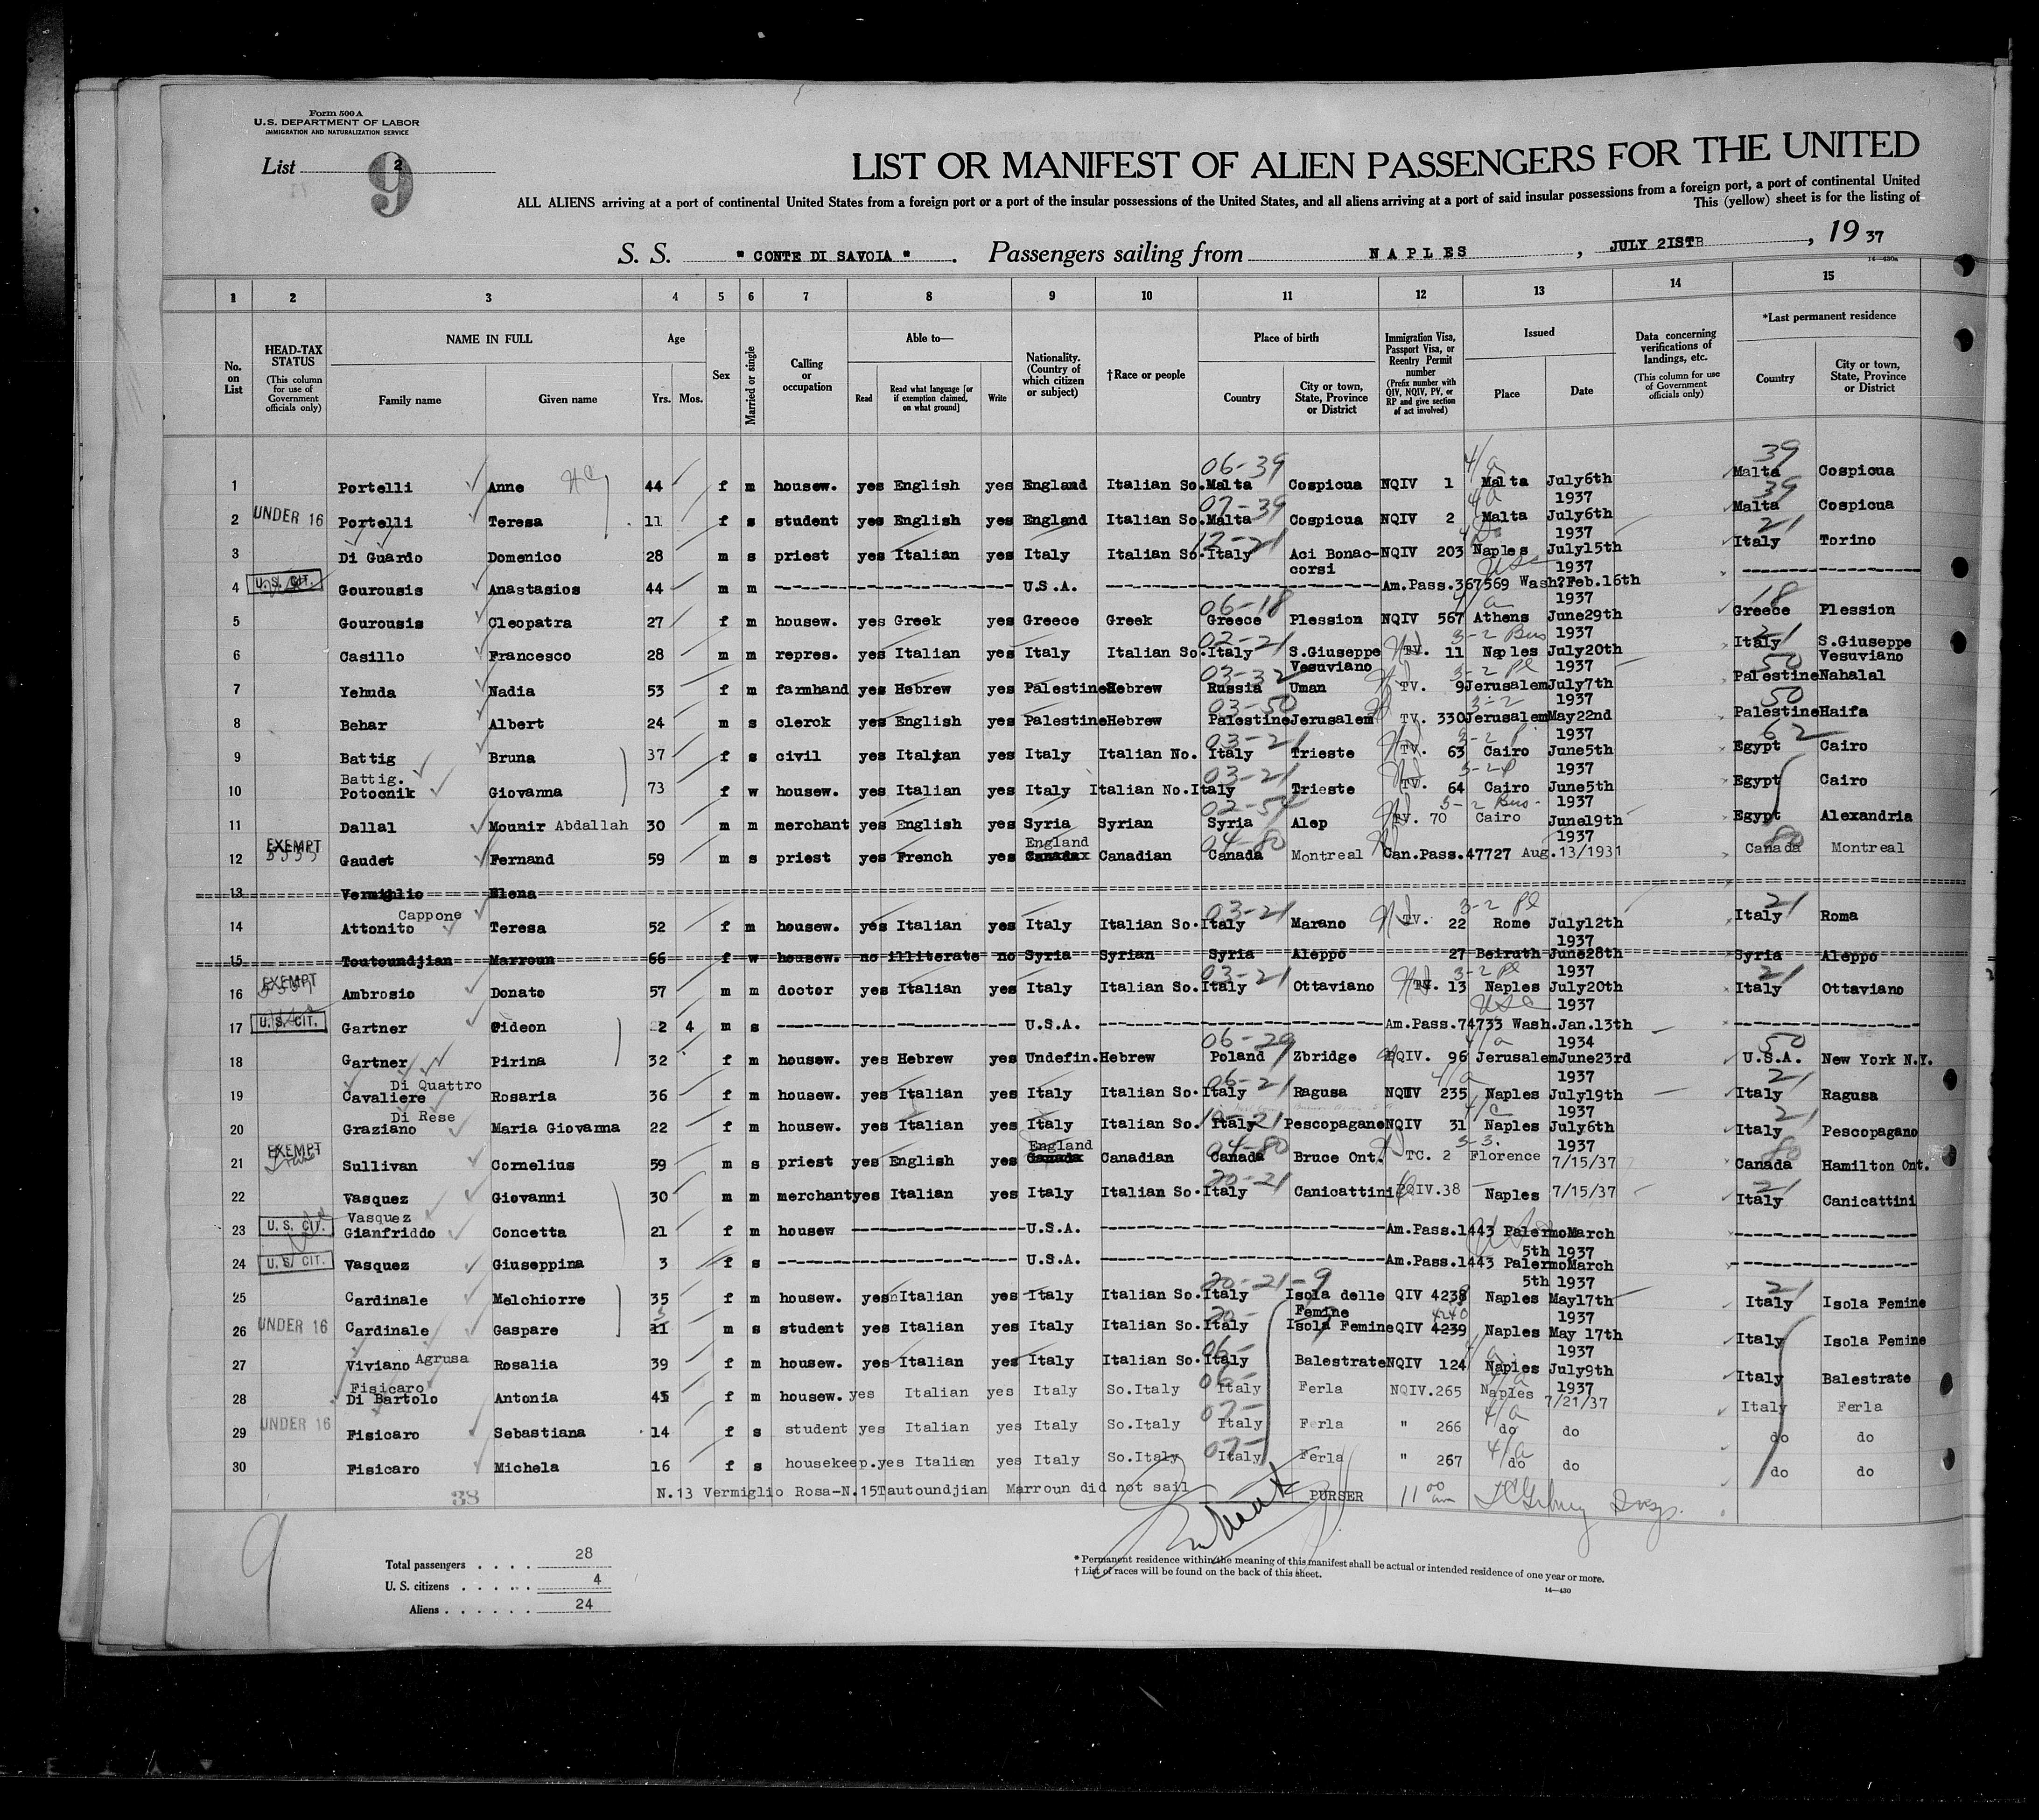 Form 500 A
U.S. DEPARTMENT OF LABOR
IMMIGRATION AND NATURALIZATION SERVICE
List 2
9
LIST OR MANIFEST OF ALIEN PASSENGERS FOR THE UNITED
ALL ALIENS arriving at a port of continental United States from a foreign port or a port of the insular possessions of the United States, and all aliens arriving at a port of said insular possessions from a foreign port, a port of continental United
This (yellow) sheet is for the listing of
S. S. " CONTE DI SAVOIA ". Passengers sailing from NAPLES, JULY 21ST, 1937
1 2 3 4 5 6 7 8 9 10 11 12 13 14 15
No. on List
HEAD-TAX STATUS
(This column for use of Government officials only)
NAME IN FULL
Family name Given name
Age
Yrs. Mos.
Sex
Married or single
Calling or occupation
Able to—
Read Read what language [or if exemption claimed, on what ground] Write
Nationality. (Country of which citizen or subject)
†Race or people
Place of birth
Country City or town, State, Province or District
Immigration Visa, Passport Visa, or Reentry Permit number
(Prefix number with QIV, NQIV, PV, or RP and give section of act involved)
Issued
Place Date
Data concerning verifications of landings, etc.
(This column for use of Government officials only)
*Last permanent residence
Country City or town, State, Province or District
1 Portelli Anne 44 f m housew. yes English yes England Italian So. Malta Cospicua NQIV 1 Malta July6th 1937 Malta Cospicua
2 UNDER 16 Portelli Teresa 11 f s student yes English yes England Italian So. Malta Cospicua NQIV 2 Malta July6th 1937 Malta Cospicua
3 Di Guardo Domenico 28 m s priest yes Italian yes Italy Italian So. Italy Aci Bonac-corsi NQIV 203 Naples July15th 1937 Italy Torino
4 U.S. CIT. Gourousis Anastasios 44 m m U.S.A. Am.Pass.367569 Wash?Feb.16th 1937
5 Gourousis Cleopatra 27 f m housew. yes Greek yes Greece Greek Greece Plession NQIV 567 Athens June29th 1937 Greece Plession
6 Casillo Francesco 28 m m repres. yes Italian yes Italy Italian So. Italy S.Giuseppe Vesuviano TV. 11 Naples July20th 1937 Italy S.Giuseppe Vesuviano
7 Yehuda Nadia 53 f m farmhand yes Hebrew yes Palestine Hebrew Russia Uman TV. 9 Jerusalem July7th 1937 Palestine Nahalal
8 Behar Albert 24 m s clerck yes English yes Palestine Hebrew Palestine Jerusalem TV. 330 Jerusalem May22nd 1937 Palestine Haifa
9 Battig Bruna 37 f s civil yes Italyan yes Italy Italian No. Italy Trieste TV. 63 Cairo June5th 1937 Egypt Cairo
10 Battig. Potocnik Giovanna 73 f w housew. yes Italian yes Italy Italian No. Italy Trieste TV. 64 Cairo June5th 1937 Egypt Cairo
11 Dallal Mounir Abdallah 30 m m merchant yes English yes Syria Syrian Syria Alep TV. 70 Cairo June19th 1937 Egypt Alexandria
12 EXEMPT Gaudet Fernand 59 m s priest yes French yes England Canadax Canadian Canada Montreal Can.Pass.47727 Aug.13/1931 Canada Montreal
13 Vermiglio Elena
14 Cappone Attonito Teresa 52 f m housew. yes Italian yes Italy Italian So. Italy Marano TV. 22 Rome July12th 1937 Italy Roma
15 Toutoundjian Marroun 66 f w housew. no illiterate no Syria Syrian Syria Aleppo 27 Beiruth June28th 1937 Syria Aleppo
16 EXEMPT Ambrosio Donato 57 m m doctor yes Italian yes Italy Italian So. Italy Ottaviano TV. 13 Naples July20th 1937 Italy Ottaviano
17 U.S. CIT. Gartner Gideon 2 4 m s U.S.A. Am.Pass.74733 Wash.Jan.13th 1934
18 Gartner Pirina 32 f m housew. yes Hebrew yes Undefin. Hebrew Poland Zbridge NQIV. 96 Jerusalem June23rd 1937 U.S.A. New York N.Y.
19 Di Quattro Cavaliere Rosaria 36 f m housew. yes Italian yes Italy Italian So. Italy Ragusa NQIV 235 Naples July19th 1937 Italy Ragusa
20 Di Rese Graziano Maria Giovanna 22 f m housew. yes Italian yes Italy Italian So. Italy Pescopagano NQIV 31 Naples July6th 1937 Italy Pescopagano
21 EXEMPT Sullivan Cornelius 59 m s priest yes English yes England Canada Canadian Canada Bruce Ont. TC. 2 Florence 7/15/37 Canada Hamilton Ont.
22 Vasquez Giovanni 30 m m merchant yes Italian yes Italy Italian So. Italy Canicattini QIV.38 Naples 7/15/37 Italy Canicattini
23 U.S. CIT. Vasquez Gianfriddo Concetta 21 f m housew U.S.A. Am.Pass.1443 Palermo March 5th 1937
24 U.S. CIT. Vasquez Giuseppina 3 f s U.S.A. Am.Pass.1443 Palermo March 5th 1937
25 Cardinale Melchiorre 35 f m housew. yes Italian yes Italy Italian So. Italy Isola delle Femine QIV 4238 Naples May17th 1937 Italy Isola Femine
26 UNDER 16 Cardinale Gaspare 11 m s student yes Italian yes Italy Italian So. Italy Isola Femine QIV 4239 4240 Naples May 17th 1937 Italy Isola Femine
27 Viviano Agrusa Rosalia 39 f m housew. yes Italian yes Italy Italian So. Italy Balestrate NQIV 124 Naples July9th 1937 Italy Balestrate
28 Fisicaro Di Bartolo Antonia 45 f m housew. yes Italian yes Italy So.Italy Italy Ferla NQIV.265 Naples 7/21/37 Italy Ferla
29 UNDER 16 Fisicaro Sebastiana 14 f s student yes Italian yes Italy So.Italy Italy Ferla " 266 do do do do
30 Fisicaro Michela 16 f s housekeep. yes Italian yes Italy So.Italy Italy Ferla " 267 do do do do
38 N.13 Vermiglio Rosa-N.15Tautoundjian Marroun did not sail PURSER 11 00 am
9
Total passengers . . . . 28
U. S. citizens . . . . . 4
Aliens . . . . . . 24
* Permanent residence within the meaning of this manifest shall be actual or intended residence of one year or more.
† List of races will be found on the back of this sheet.
14—430